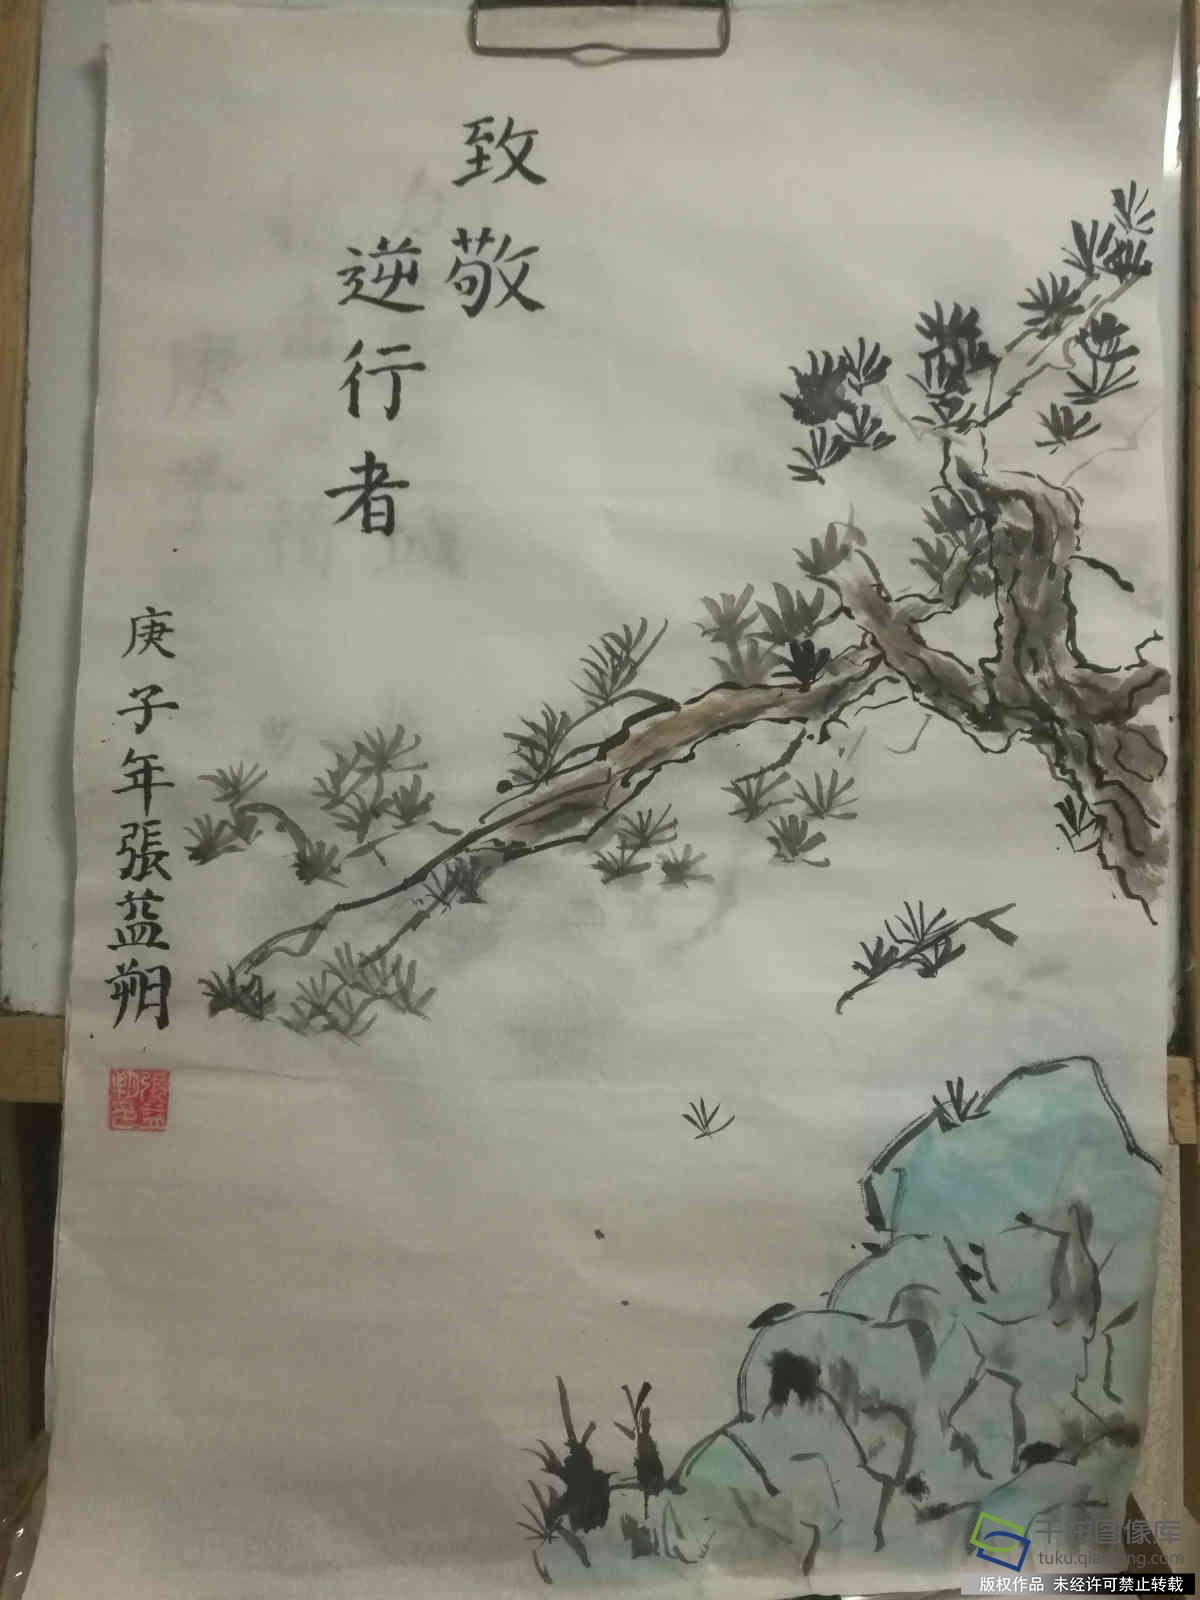 致敬
逆行者
庚子年張藍朔
千千图像库
tuku.qianlong.com
版权作品 未经许可禁止转载